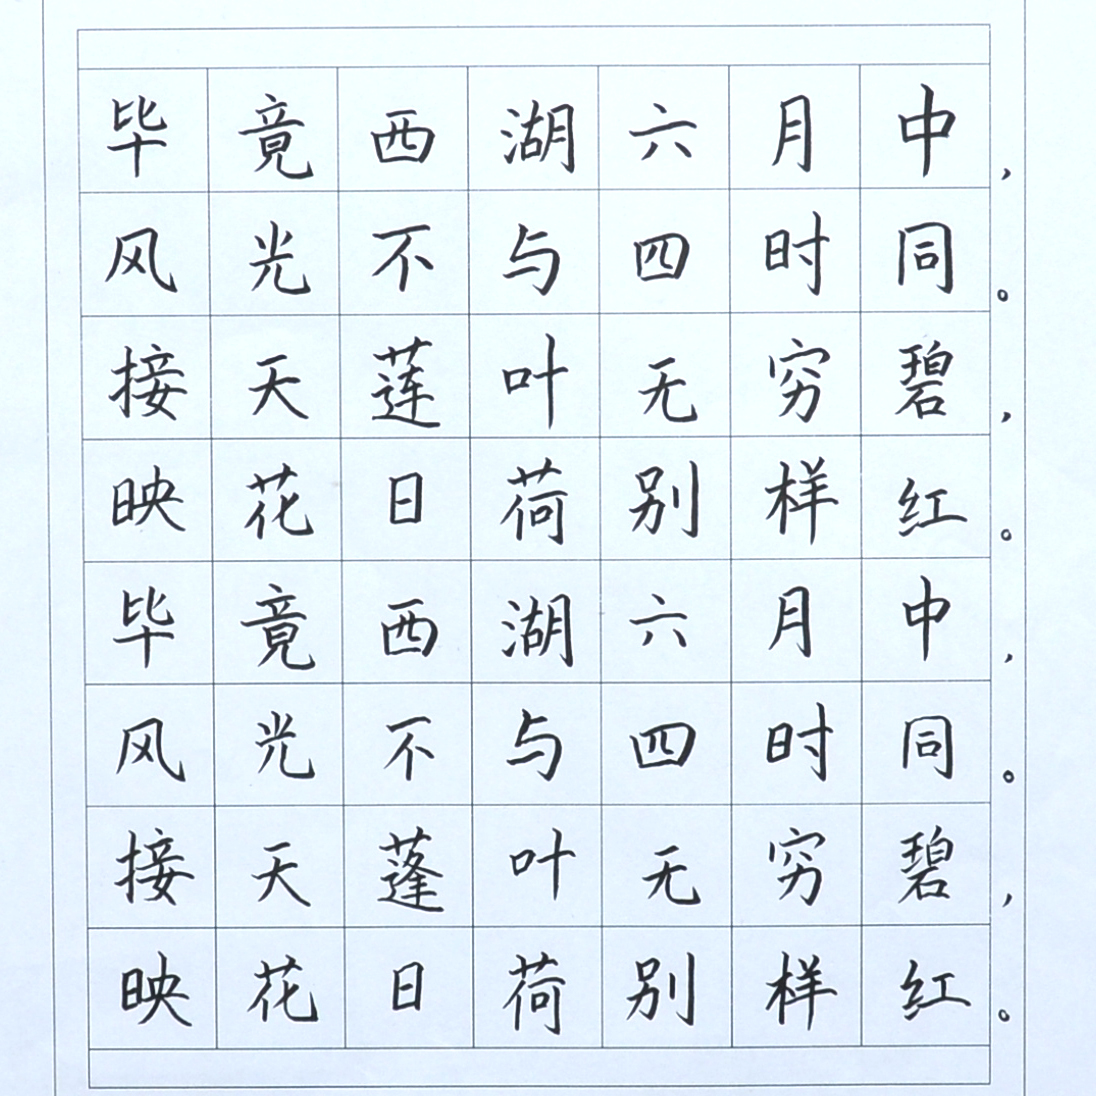 毕竟西湖六月中，
风光不与四时同。
接天莲叶无穷碧，
映花日荷别样红。
毕竟西湖六月中，
风光不与四时同。
接天蓬叶无穷碧，
映花日荷别样红。